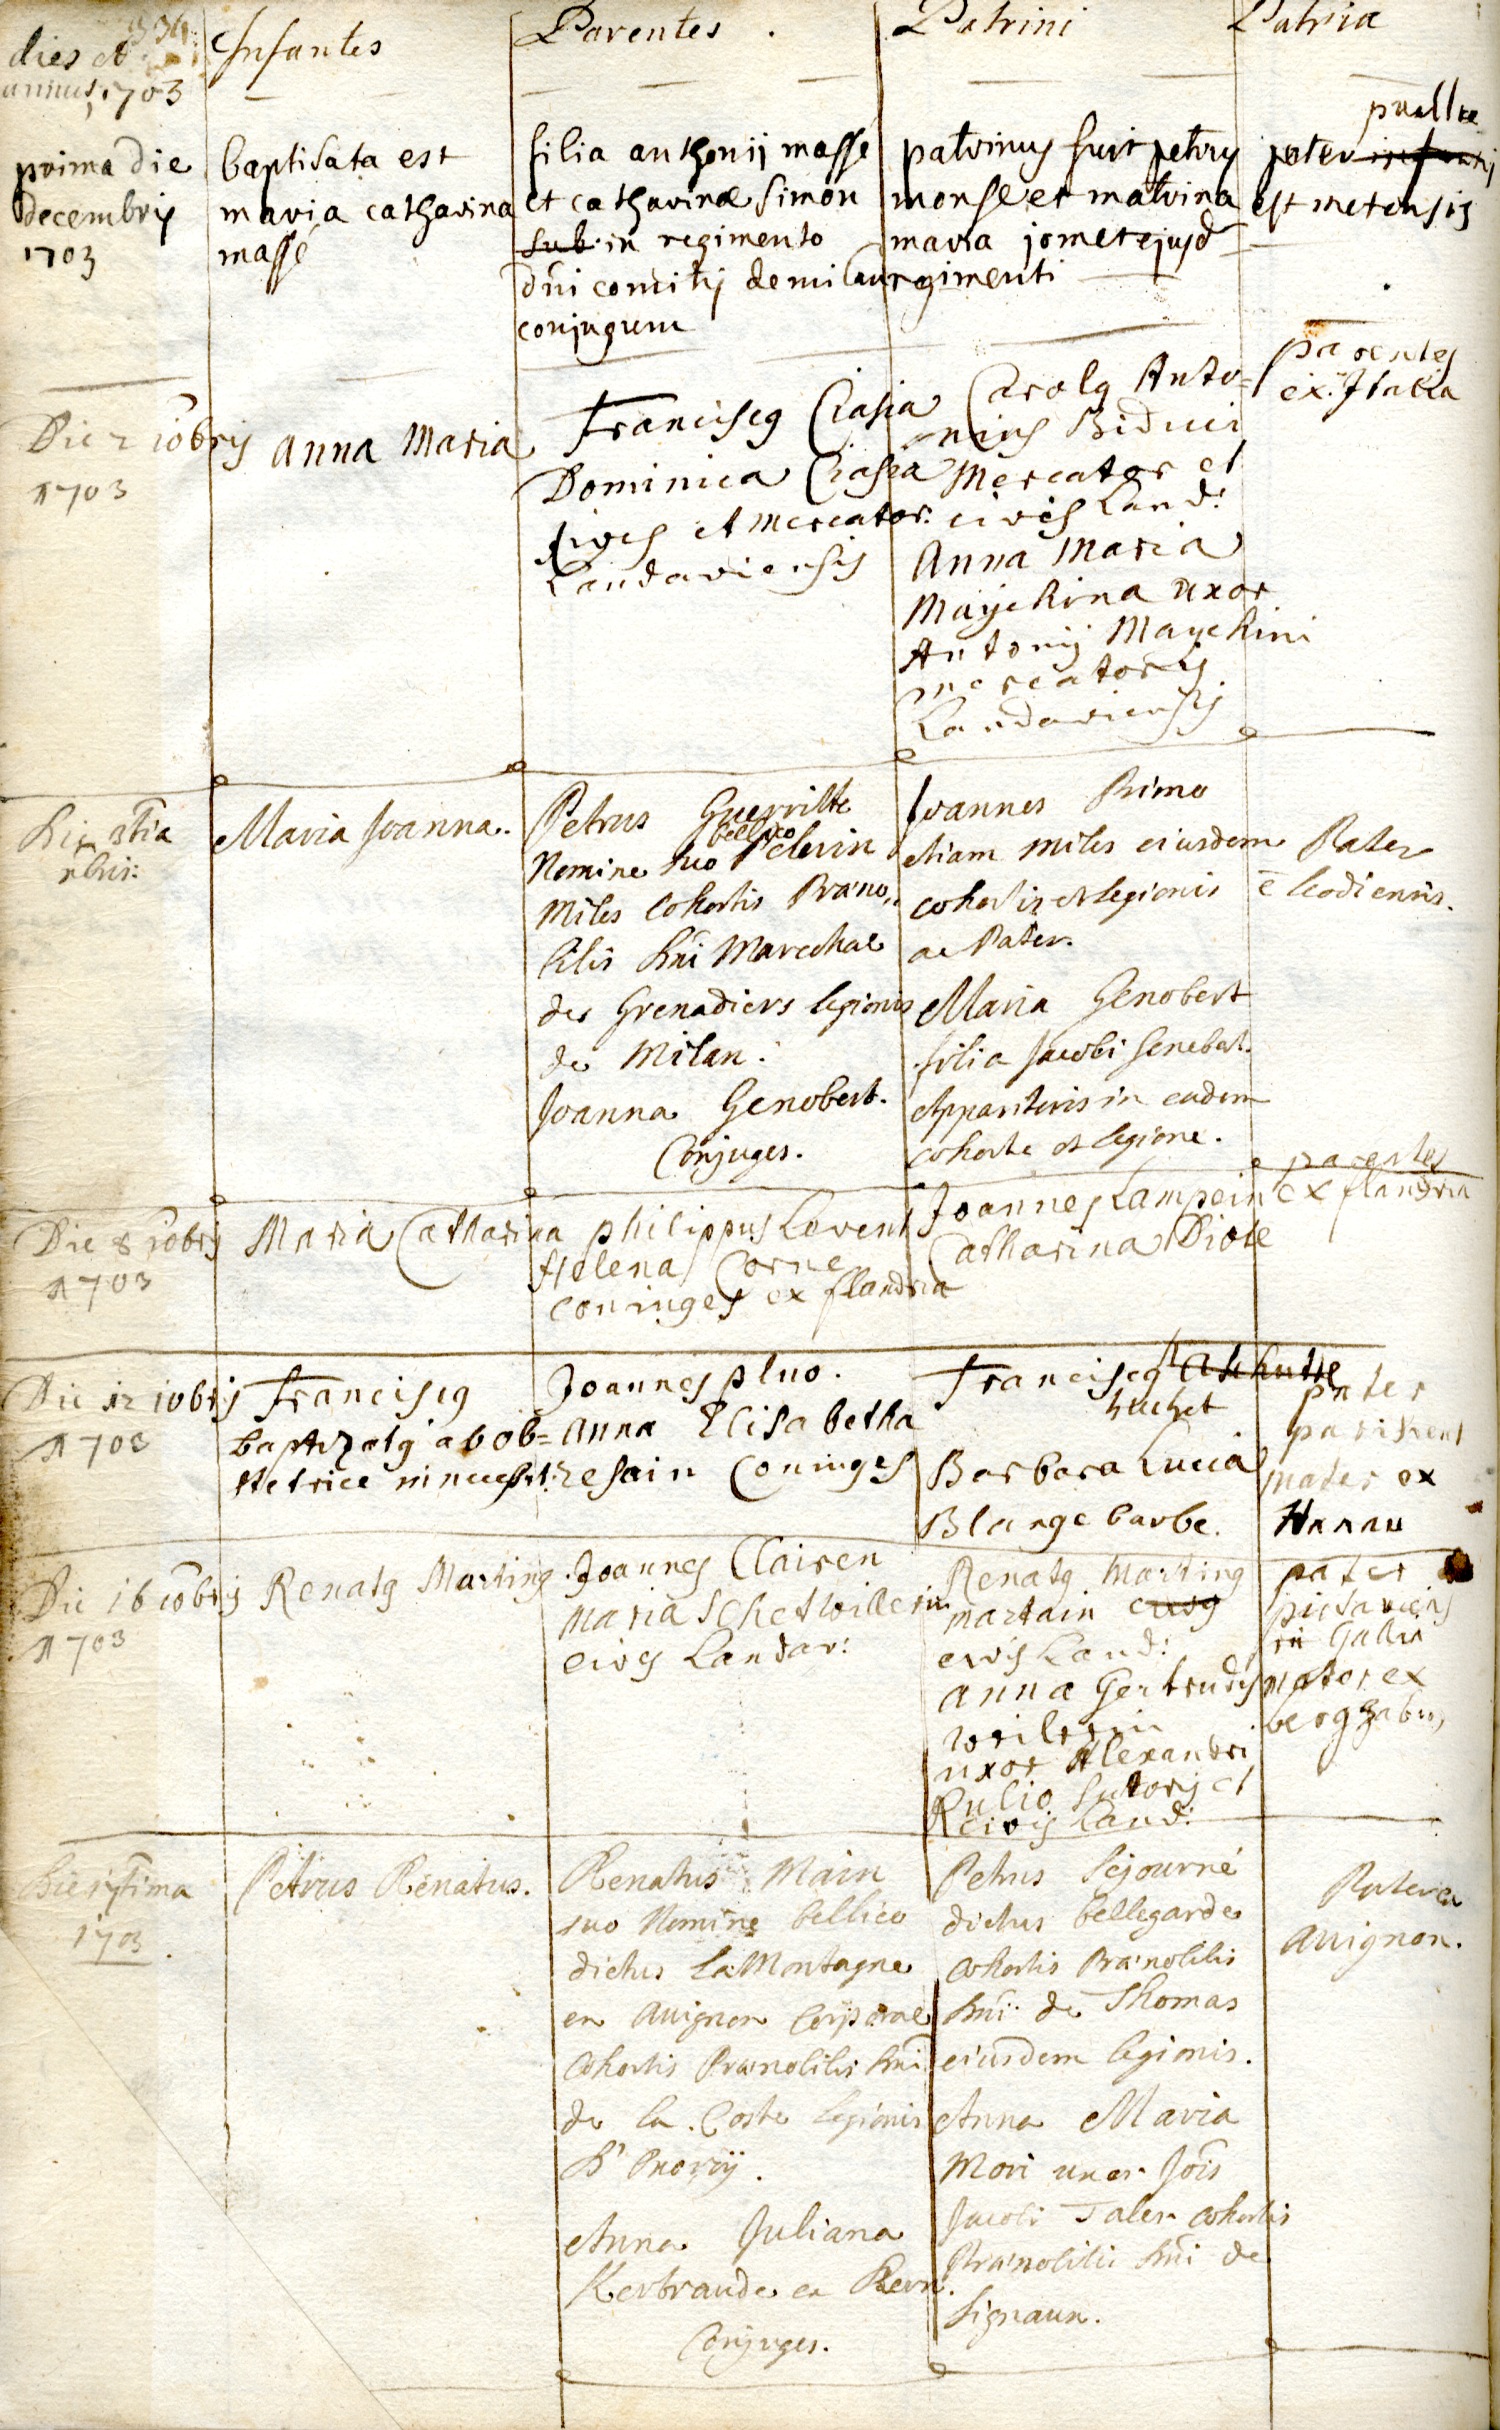 334
dies et
annus 1703
Infantes
Parentes .
Patrini
Patria
prima die
decembris
1703
baptisata est
maria catharina
massé
filia anthonij massé
et catharinæ simon
sub in regimento
dni comitis de milan
conjugum
patrinus fuit petrus
monse et matrina
maria jomet ejusd
regimenti
puellæ
pater infantis
est metensis
Die 2 10bris
1703
Anna Maria
Franciscq Ciasia
Dominica Ciasia
cives et mercator.
Landaviensis
Carolq Anto=
nius Biduci
Mercator et
civis Land:
Anna Maria
Mayekina uxor
Antonij Mayekini
mercatoris
Landaviensis
parentes
ex Italia
Die 3tia
xbris:
Maria Joanna.
Petrus Guerritte
bellico
Nomine suo Pelerin
Miles Cohortis Præno„
bilis Dni Marechal
des Grenadiers legionis
de Milan.
Joanna Genobert.
Conjuges.
Joannes Primo
etiam miles eiusdem
cohortis et legionis
ac Pater.
Maria Genobert
filia Jacobi Genobert.
Apparitoris in eadem
cohorte et legione.
Pater
ē leodiensis.
Die 8 10bris
1703
Maria Catharina
philippus Lorent
Helena Corne
coniuges ex flandria
Joannes Lampein
Catharina Diote
parentes
ex flandria
Die 12 10bris
1703
Franciscq
baptizatq ab ob=
stetrice in necessit:
Joannes pluo.
Anna Elisabetha
resain Coniuges
Franciscq
huchet
Barbara Lucia
Blange barbe.
pater
parisiens
mater ex
Hanau
Die 16 10bris
1703
Renatq Martinq
Joannes Clairen
Maria Schetwillerin
cives Landav:
Renatq Martinq
martain civsq
civis Land:
anna Gertrudis
uxor Alexandri
Rulio Sutoris et
civis Land:
pater
pictaviens
in Gallia
mater ex
bergzabern
Die 17tima
1703
Petrus Renatus.
Renatus Main
suo Nomine bellico
dictus La Montagne
en Avignon Corporal
Cohortis Prænobilis Dni
de la Coste legionis
Anna Juliana
Kerbraude ex
Conjuges.
Petrus Sejourné
dictus bellegarde
Cohortis Prænobilis
Dni de Thomas
eiusdem legionis.
Anna Maria
Mori uxor Jois
Jacobi Taler Cohortis
Prænobilis Dni de
Signaun.
Pater ex
Avignon.